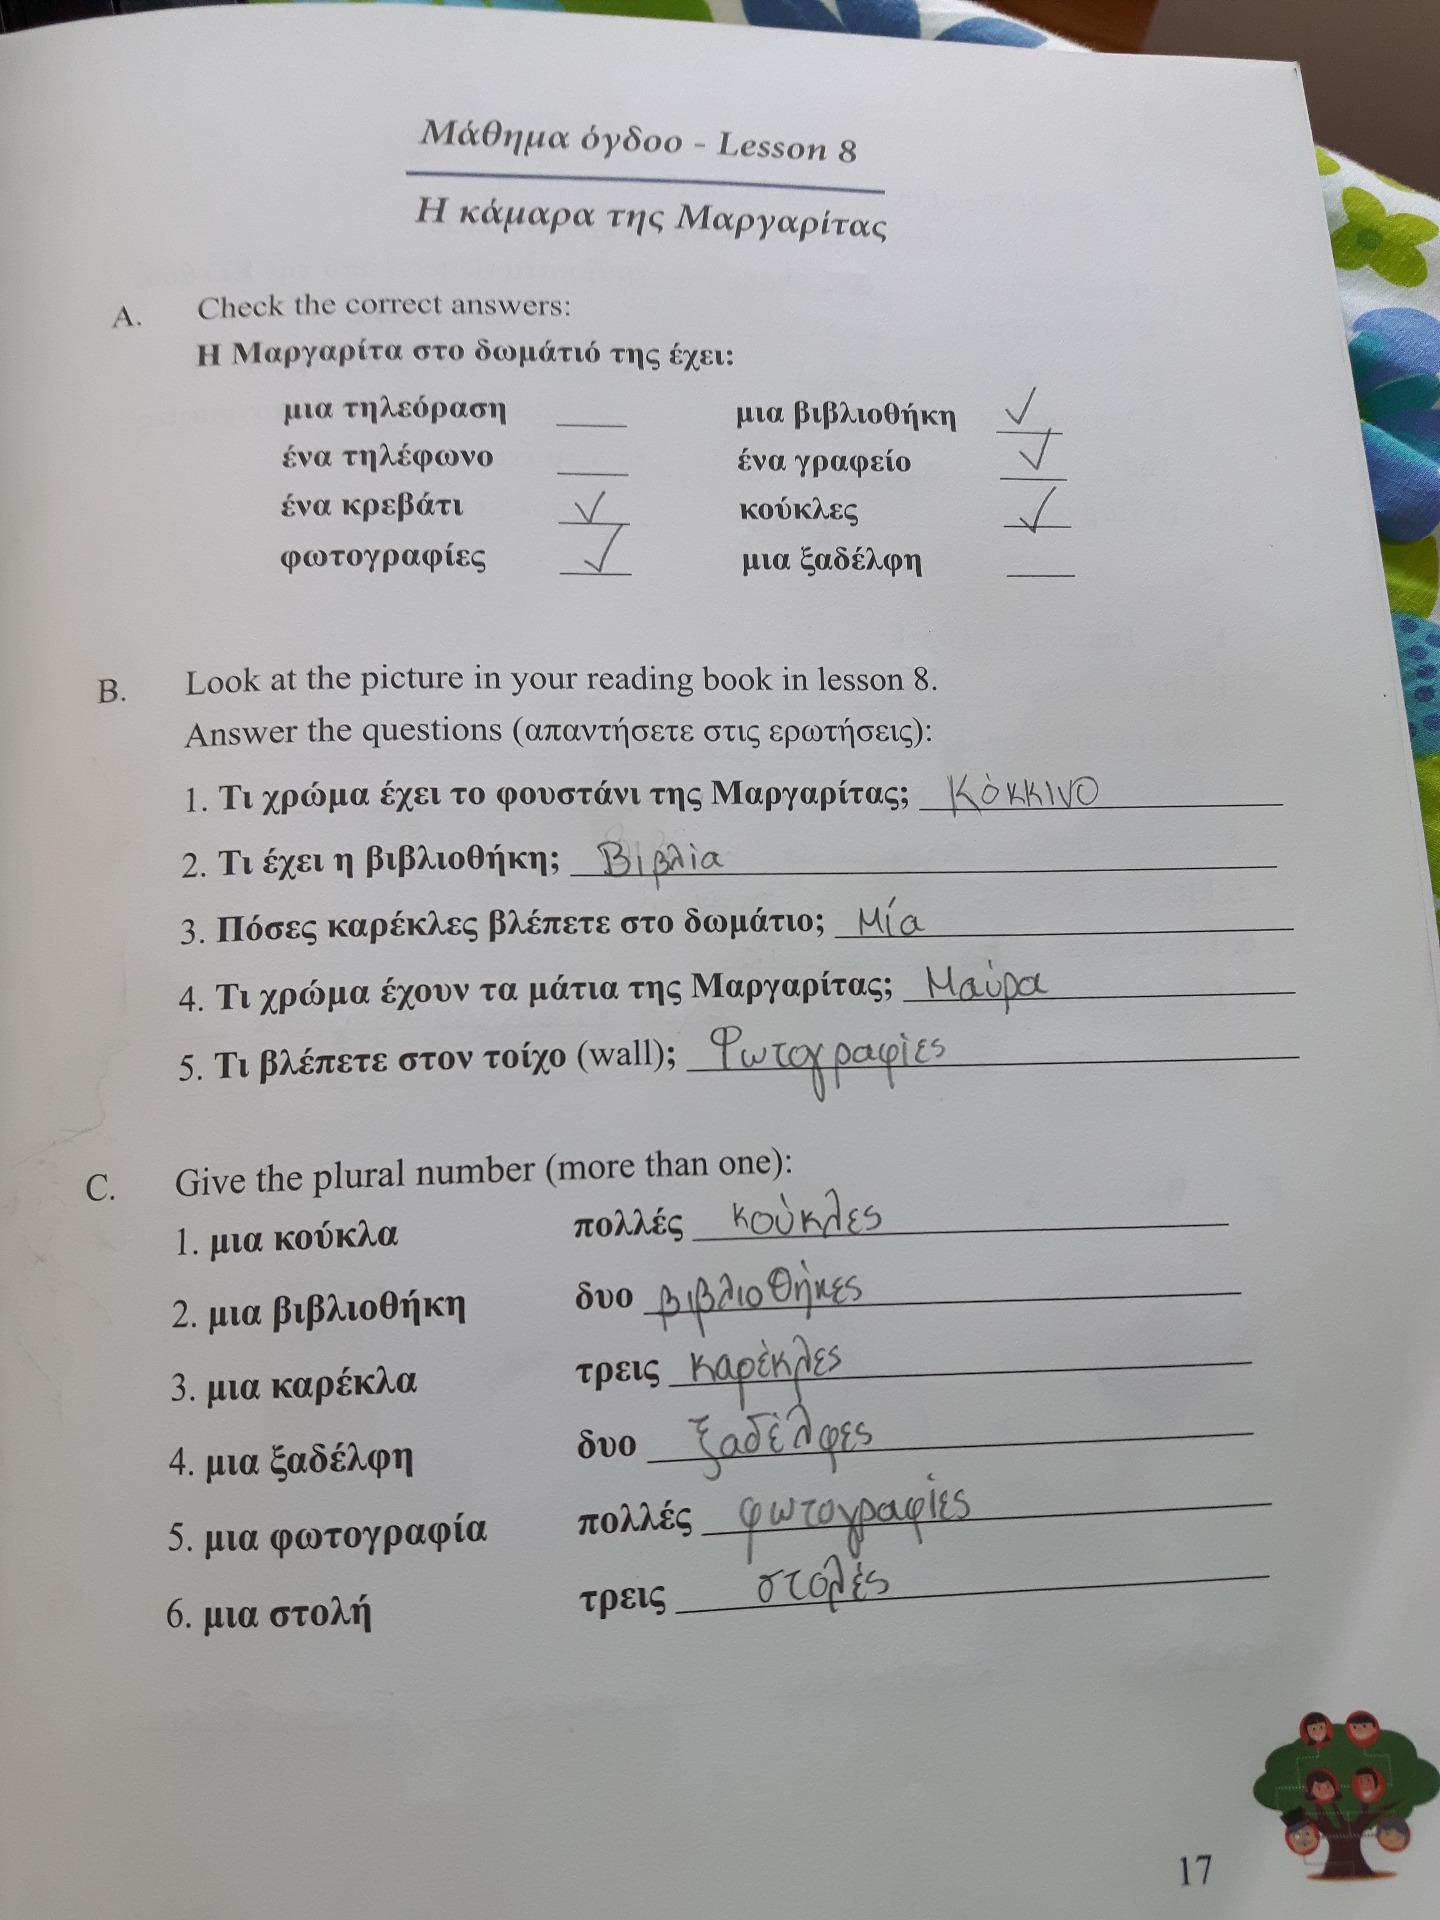 Μάθημα όγδοο - Lesson 8
Η κάμαρα της Μαργαρίτας
A. Check the correct answers:
Η Μαργαρίτα στο δωμάτιό της έχει:
μια τηλεόραση ___ μια βιβλιοθήκη ✓
ένα τηλέφωνο ___ ένα γραφείο ✓
ένα κρεβάτι ✓ κούκλες ✓
φωτογραφίες ✓ μια ξαδέλφη ___
B. Look at the picture in your reading book in lesson 8.
Answer the questions (απαντήσετε στις ερωτήσεις):
1. Τι χρώμα έχει το φουστάνι της Μαργαρίτας; Κόκκινο
2. Τι έχει η βιβλιοθήκη; Βιβλία
3. Πόσες καρέκλες βλέπετε στο δωμάτιο; Μία
4. Τι χρώμα έχουν τα μάτια της Μαργαρίτας; Μαύρα
5. Τι βλέπετε στον τοίχο (wall); Φωτογραφίες
C. Give the plural number (more than one):
1. μια κούκλα πολλές κούκλες
2. μια βιβλιοθήκη δυο βιβλιοθήκες
3. μια καρέκλα τρεις καρέκλες
4. μια ξαδέλφη δυο ξαδέλφες
5. μια φωτογραφία πολλές φωτογραφίες
6. μια στολή τρεις στολές
17